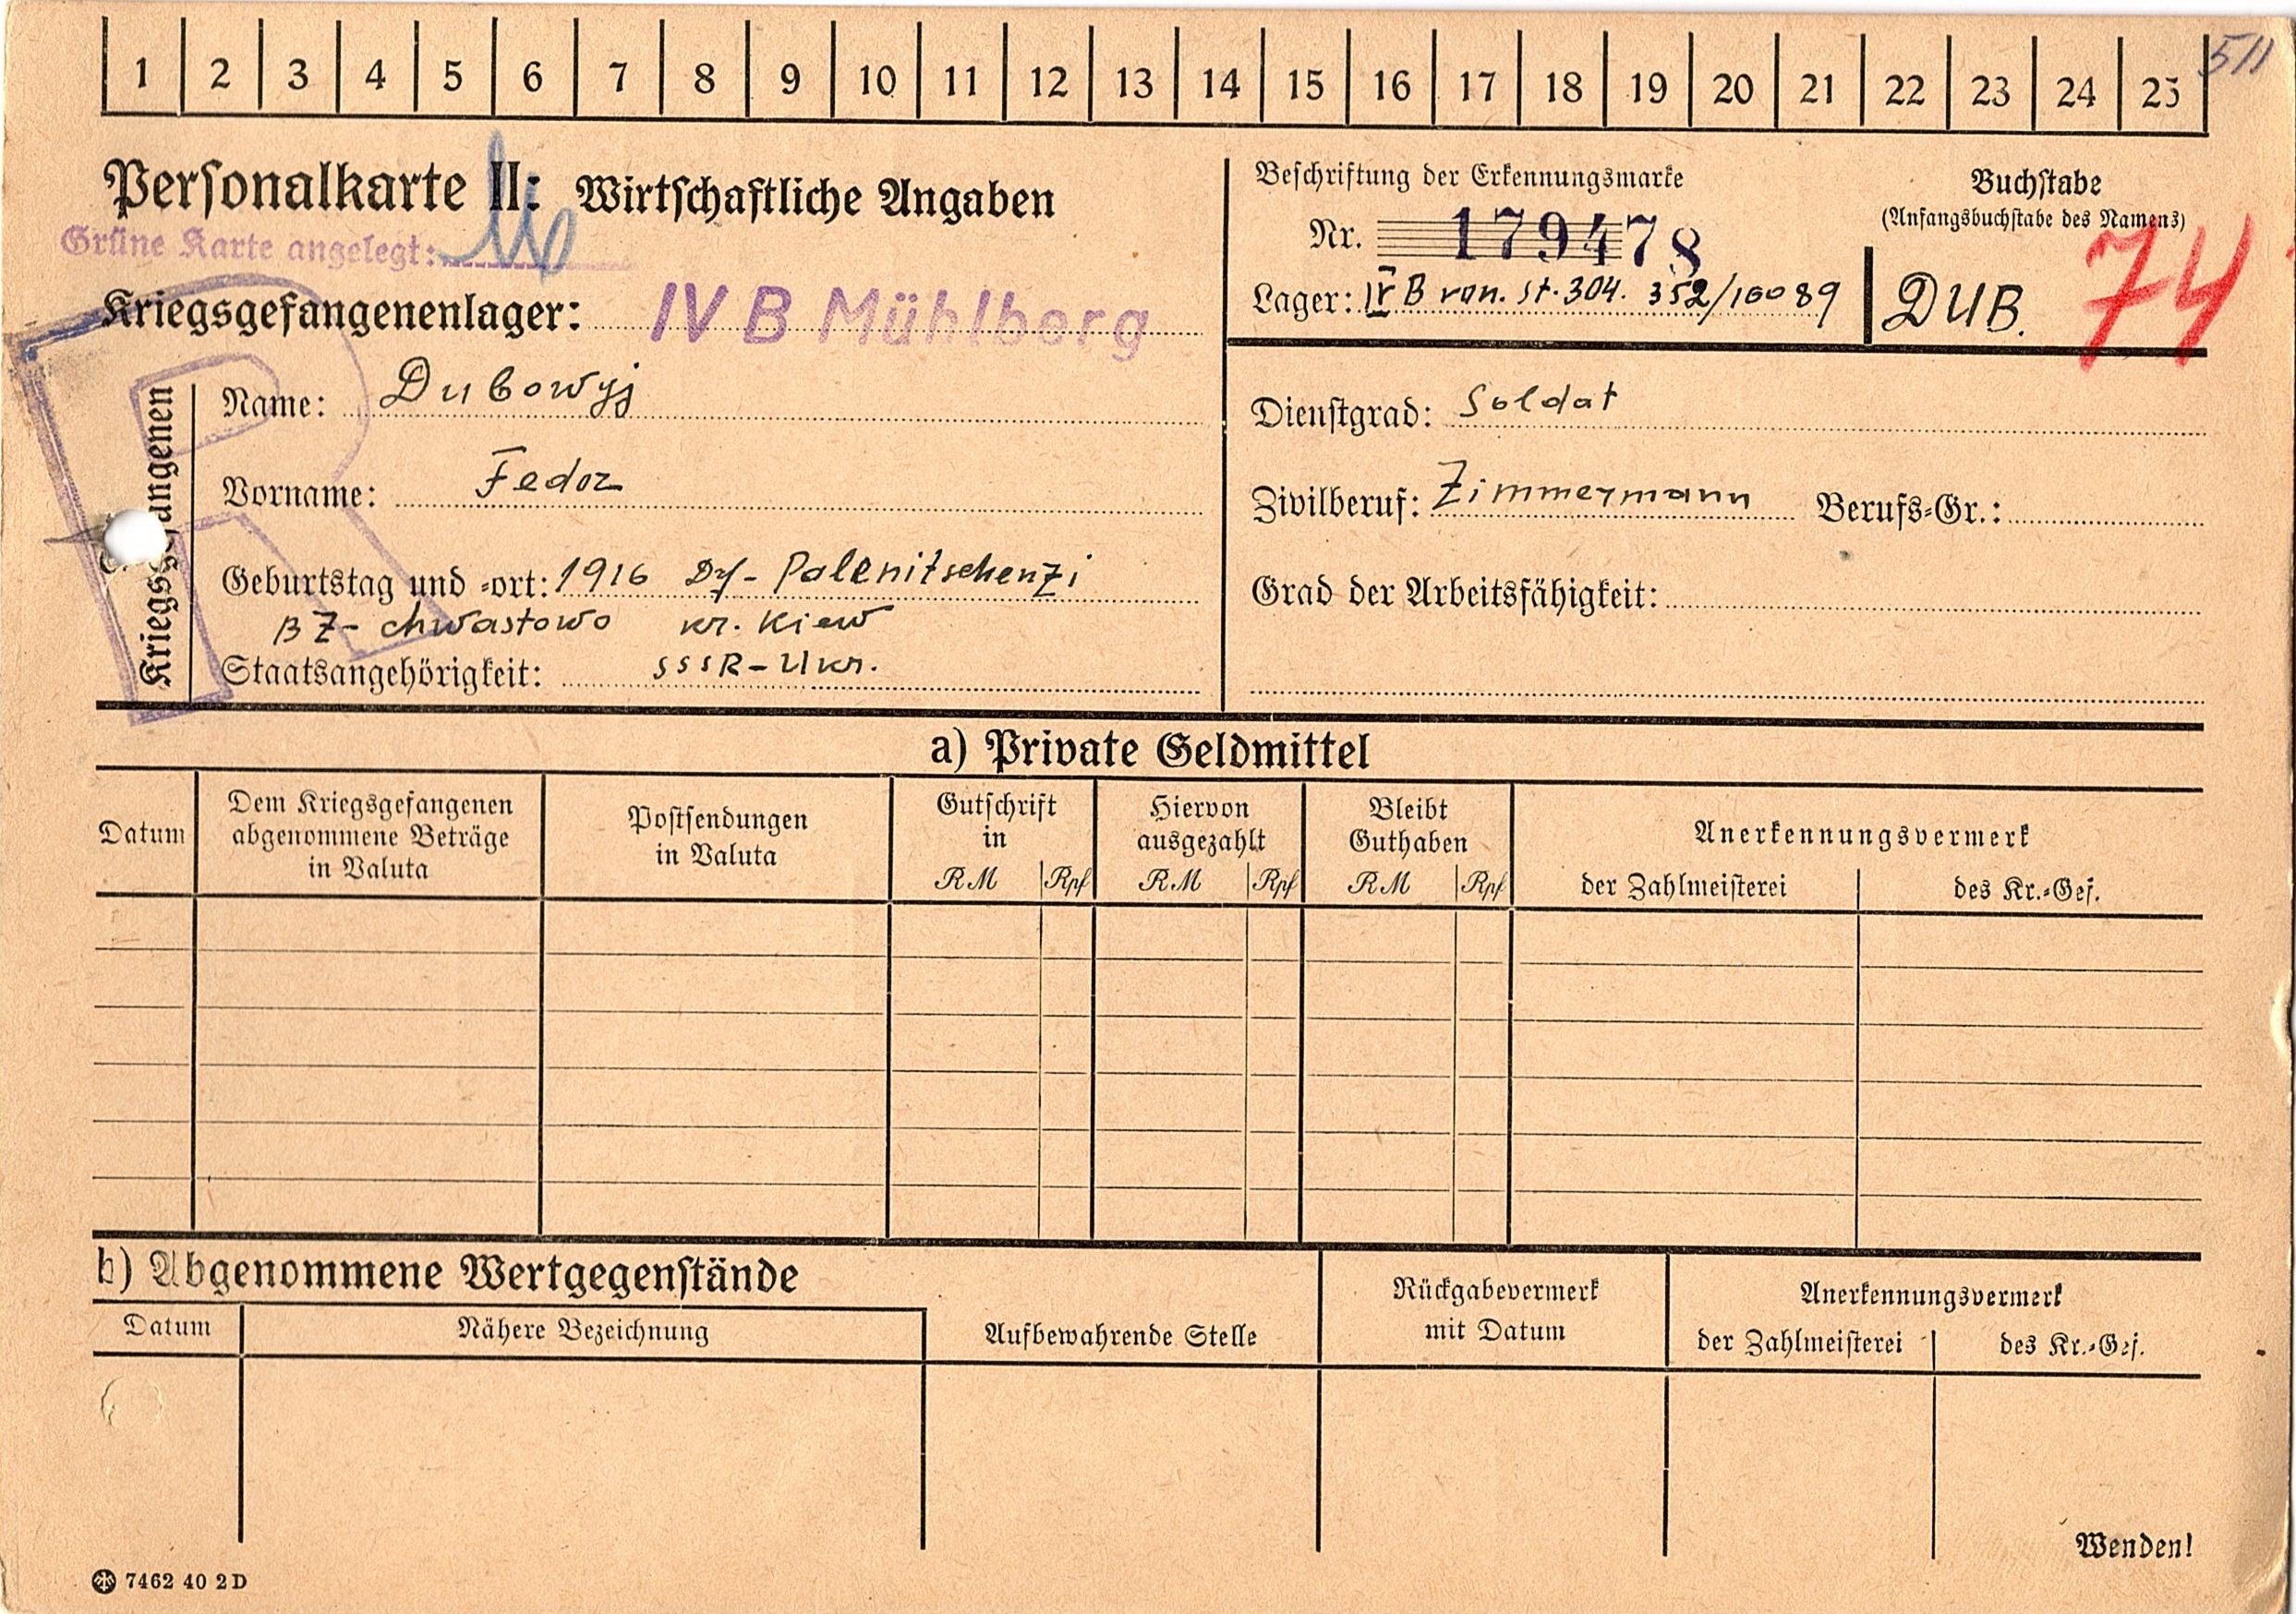 511
1 2 3 4 5 6 7 8 9 10 11 12 13 14 15 16 17 18 19 20 21 22 23 24 25
Personalkarte II: Wirtschaftliche Angaben
Grüne Karte angelegt:
Kriegsgefangenenlager: IV B Mühlberg
Kriegsgefangenen
Name: Dubowyj
Vorname: Fedor
Geburtstag und -ort: 1916 Df- Palenitschenzi
BZ- chwastowo kr. Kiew
Staatsangehörigkeit: SSSR-Ukr.
Beschriftung der Erkennungsmarke
Nr. 179478
Lager: IV B von. St. 304. 352/16089
Buchstabe
(Anfangsbuchstabe des Namens)
DUB. 74
Dienstgrad: Soldat
Zivilberuf: Zimmermann Berufs-Gr.:
Grad der Arbeitsfähigkeit:
a) Private Geldmittel
Datum
Dem Kriegsgefangenen
abgenommene Beträge
in Valuta
Postsendungen
in Valuta
Gutschrift
in
RM Rpf
Hiervon
ausgezahlt
RM Rpf
Bleibt
Guthaben
RM Rpf
Anerkennungsvermerk
der Zahlmeisterei des Kr.-Gef.
b) Abgenommene Wertgegenstände
Datum Nähere Bezeichnung
Aufbewahrende Stelle
Rückgabevermerk
mit Datum
Anerkennungsvermerk
der Zahlmeisterei des Kr.-Gef.
Wenden!
7462 40 2D